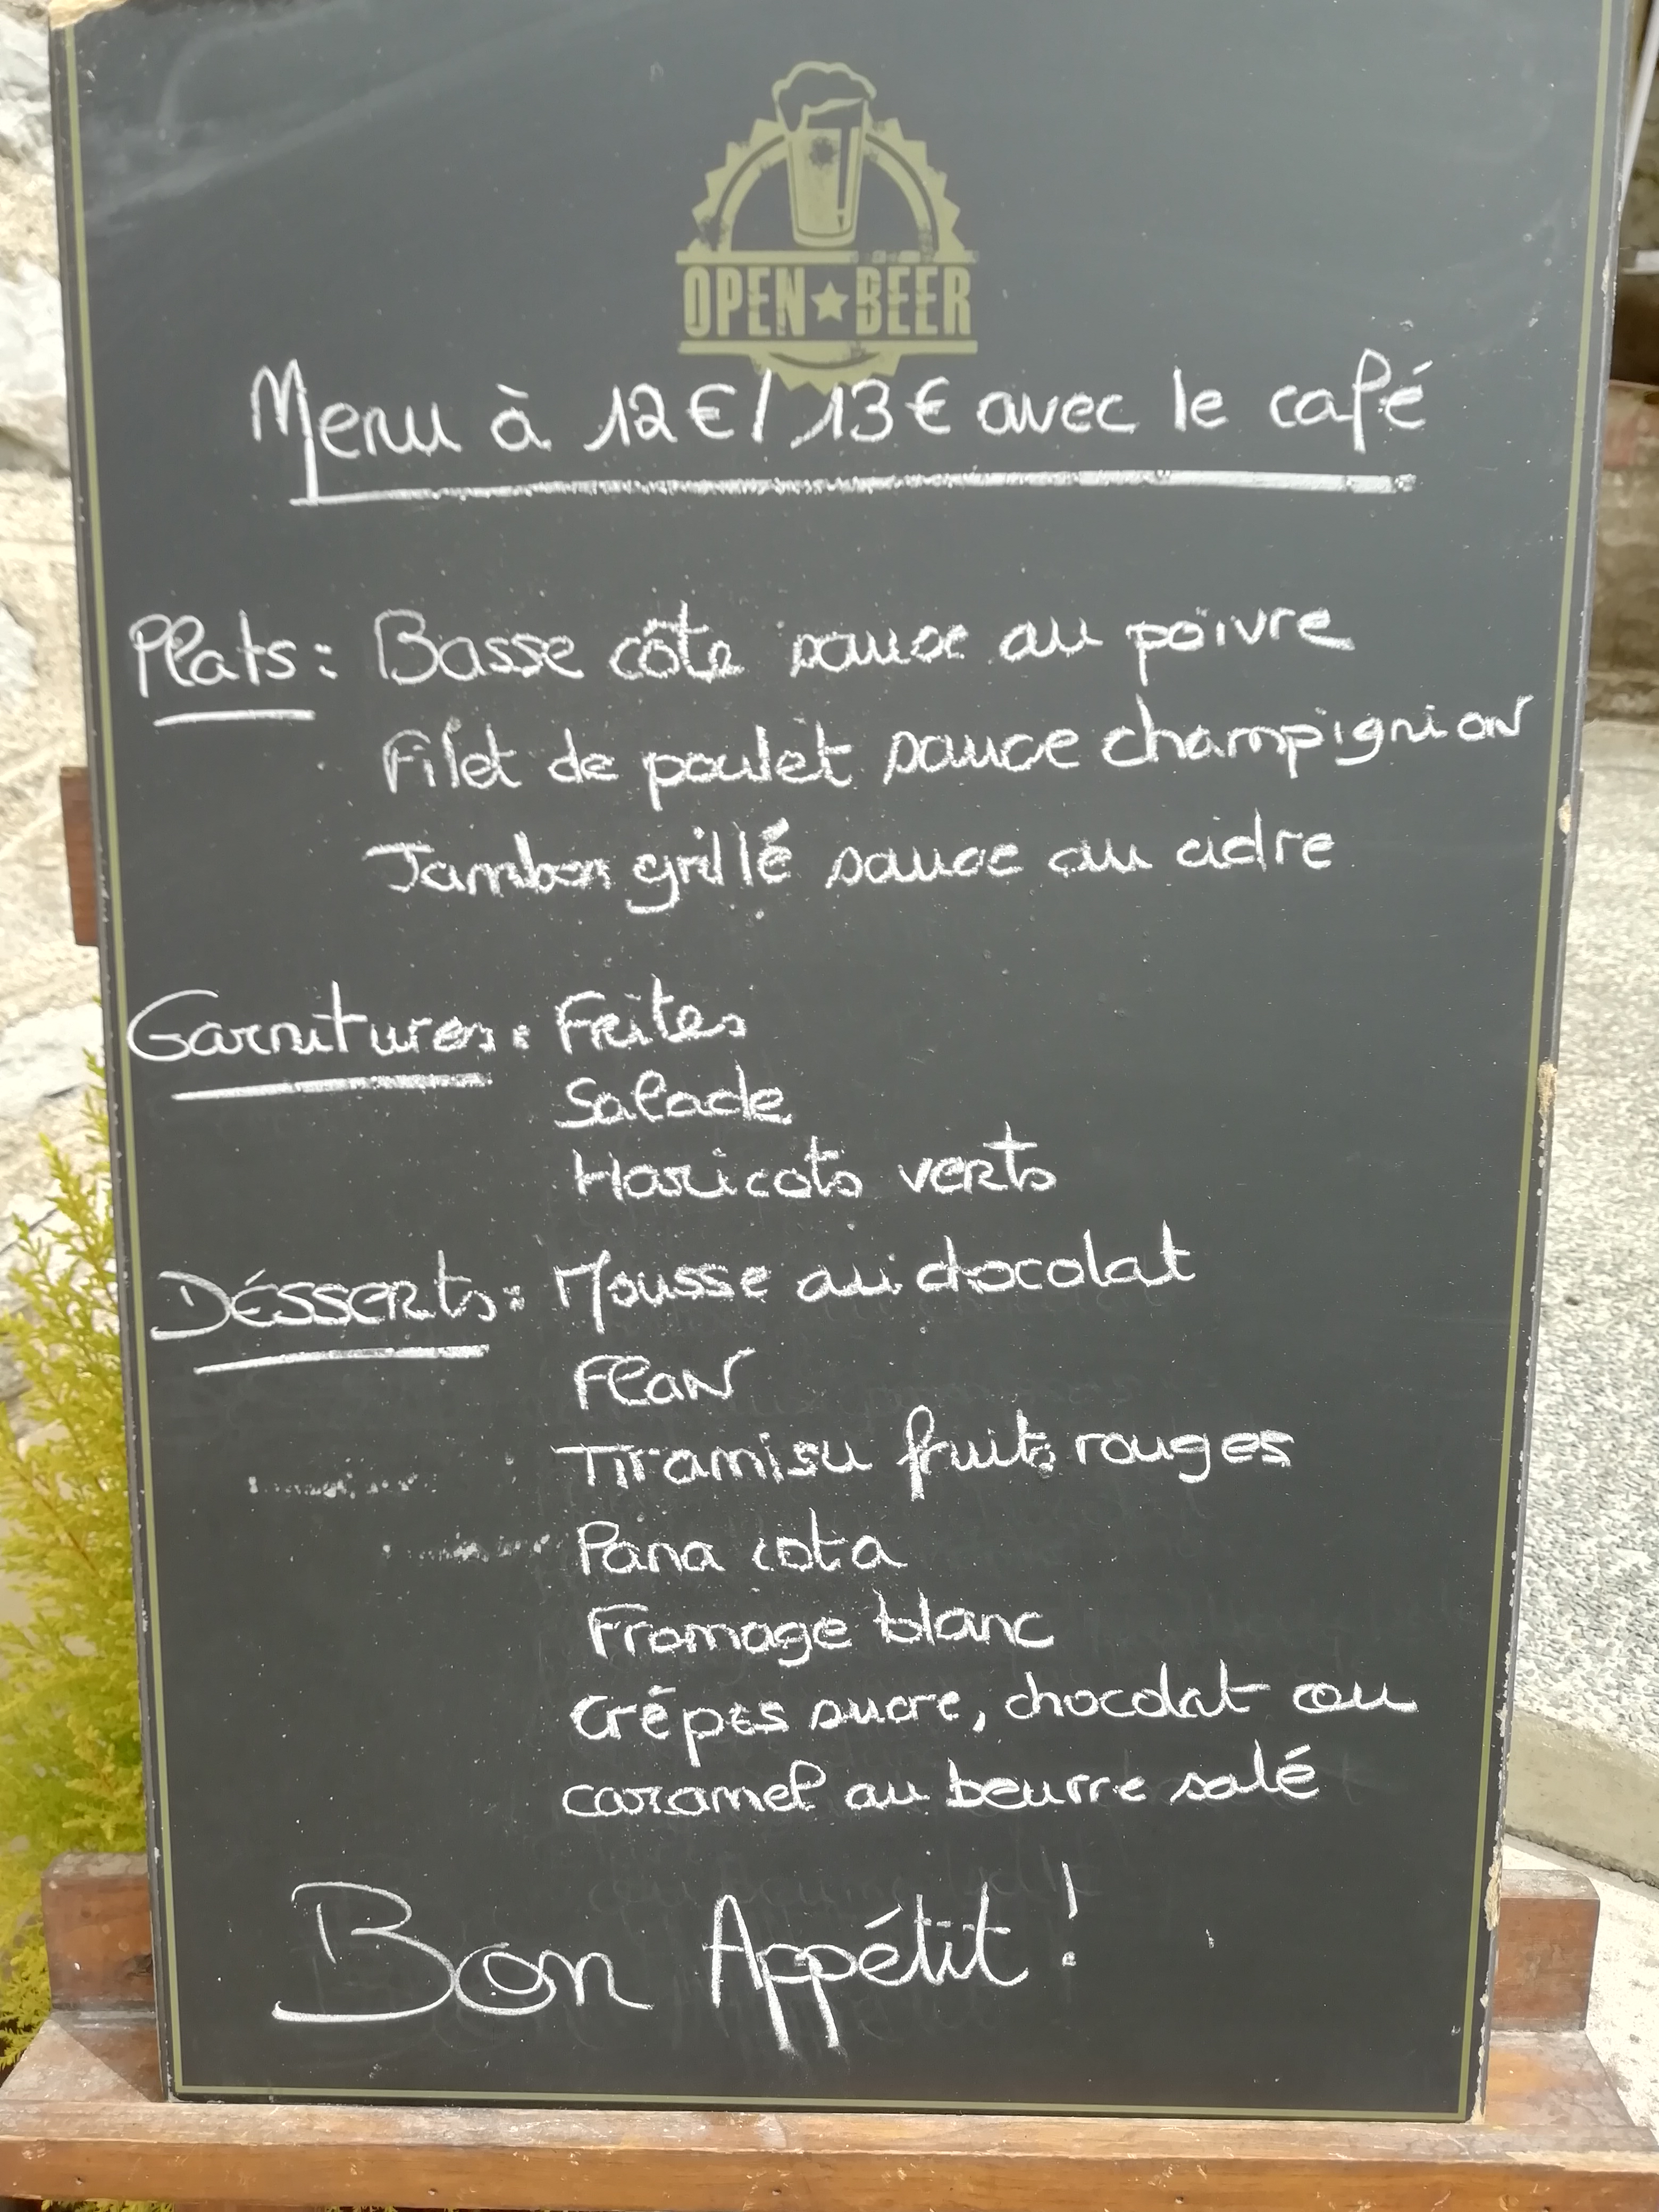 OPEN★BEER
Menu à 12€/ 13€ avec le café
Plats: Basse côte sauce au poivre
Filet de poulet sauce champignion
Jambon grillé sauce au cidre
Garnitures: Frites
Salade
Haricots verts
Désserts: Mousse au chocolat
Flan
Tiramisu fruits rouges
Pana cota
Fromage blanc
Crêpes sucre, chocolat ou
caramel au beurre salé
Bon Appétit!